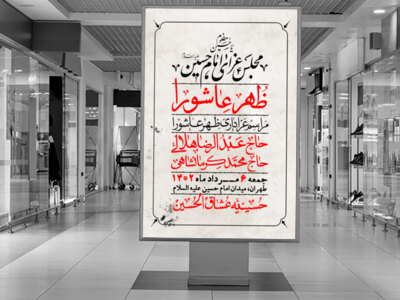 یا حسین مظلوم
مجلس عزای امام حسین علیه السلام
ظهر عاشورا
مراسم عزاداری ظهر عاشورا
حاج عبدالرضا هلالی
حاج محمد کرمانشاهی
جمعه ۶ مرداد ماه ۱۴۰۲
طهران، میدان امام حسین علیه السلام
حسینیه عشاق الحسین